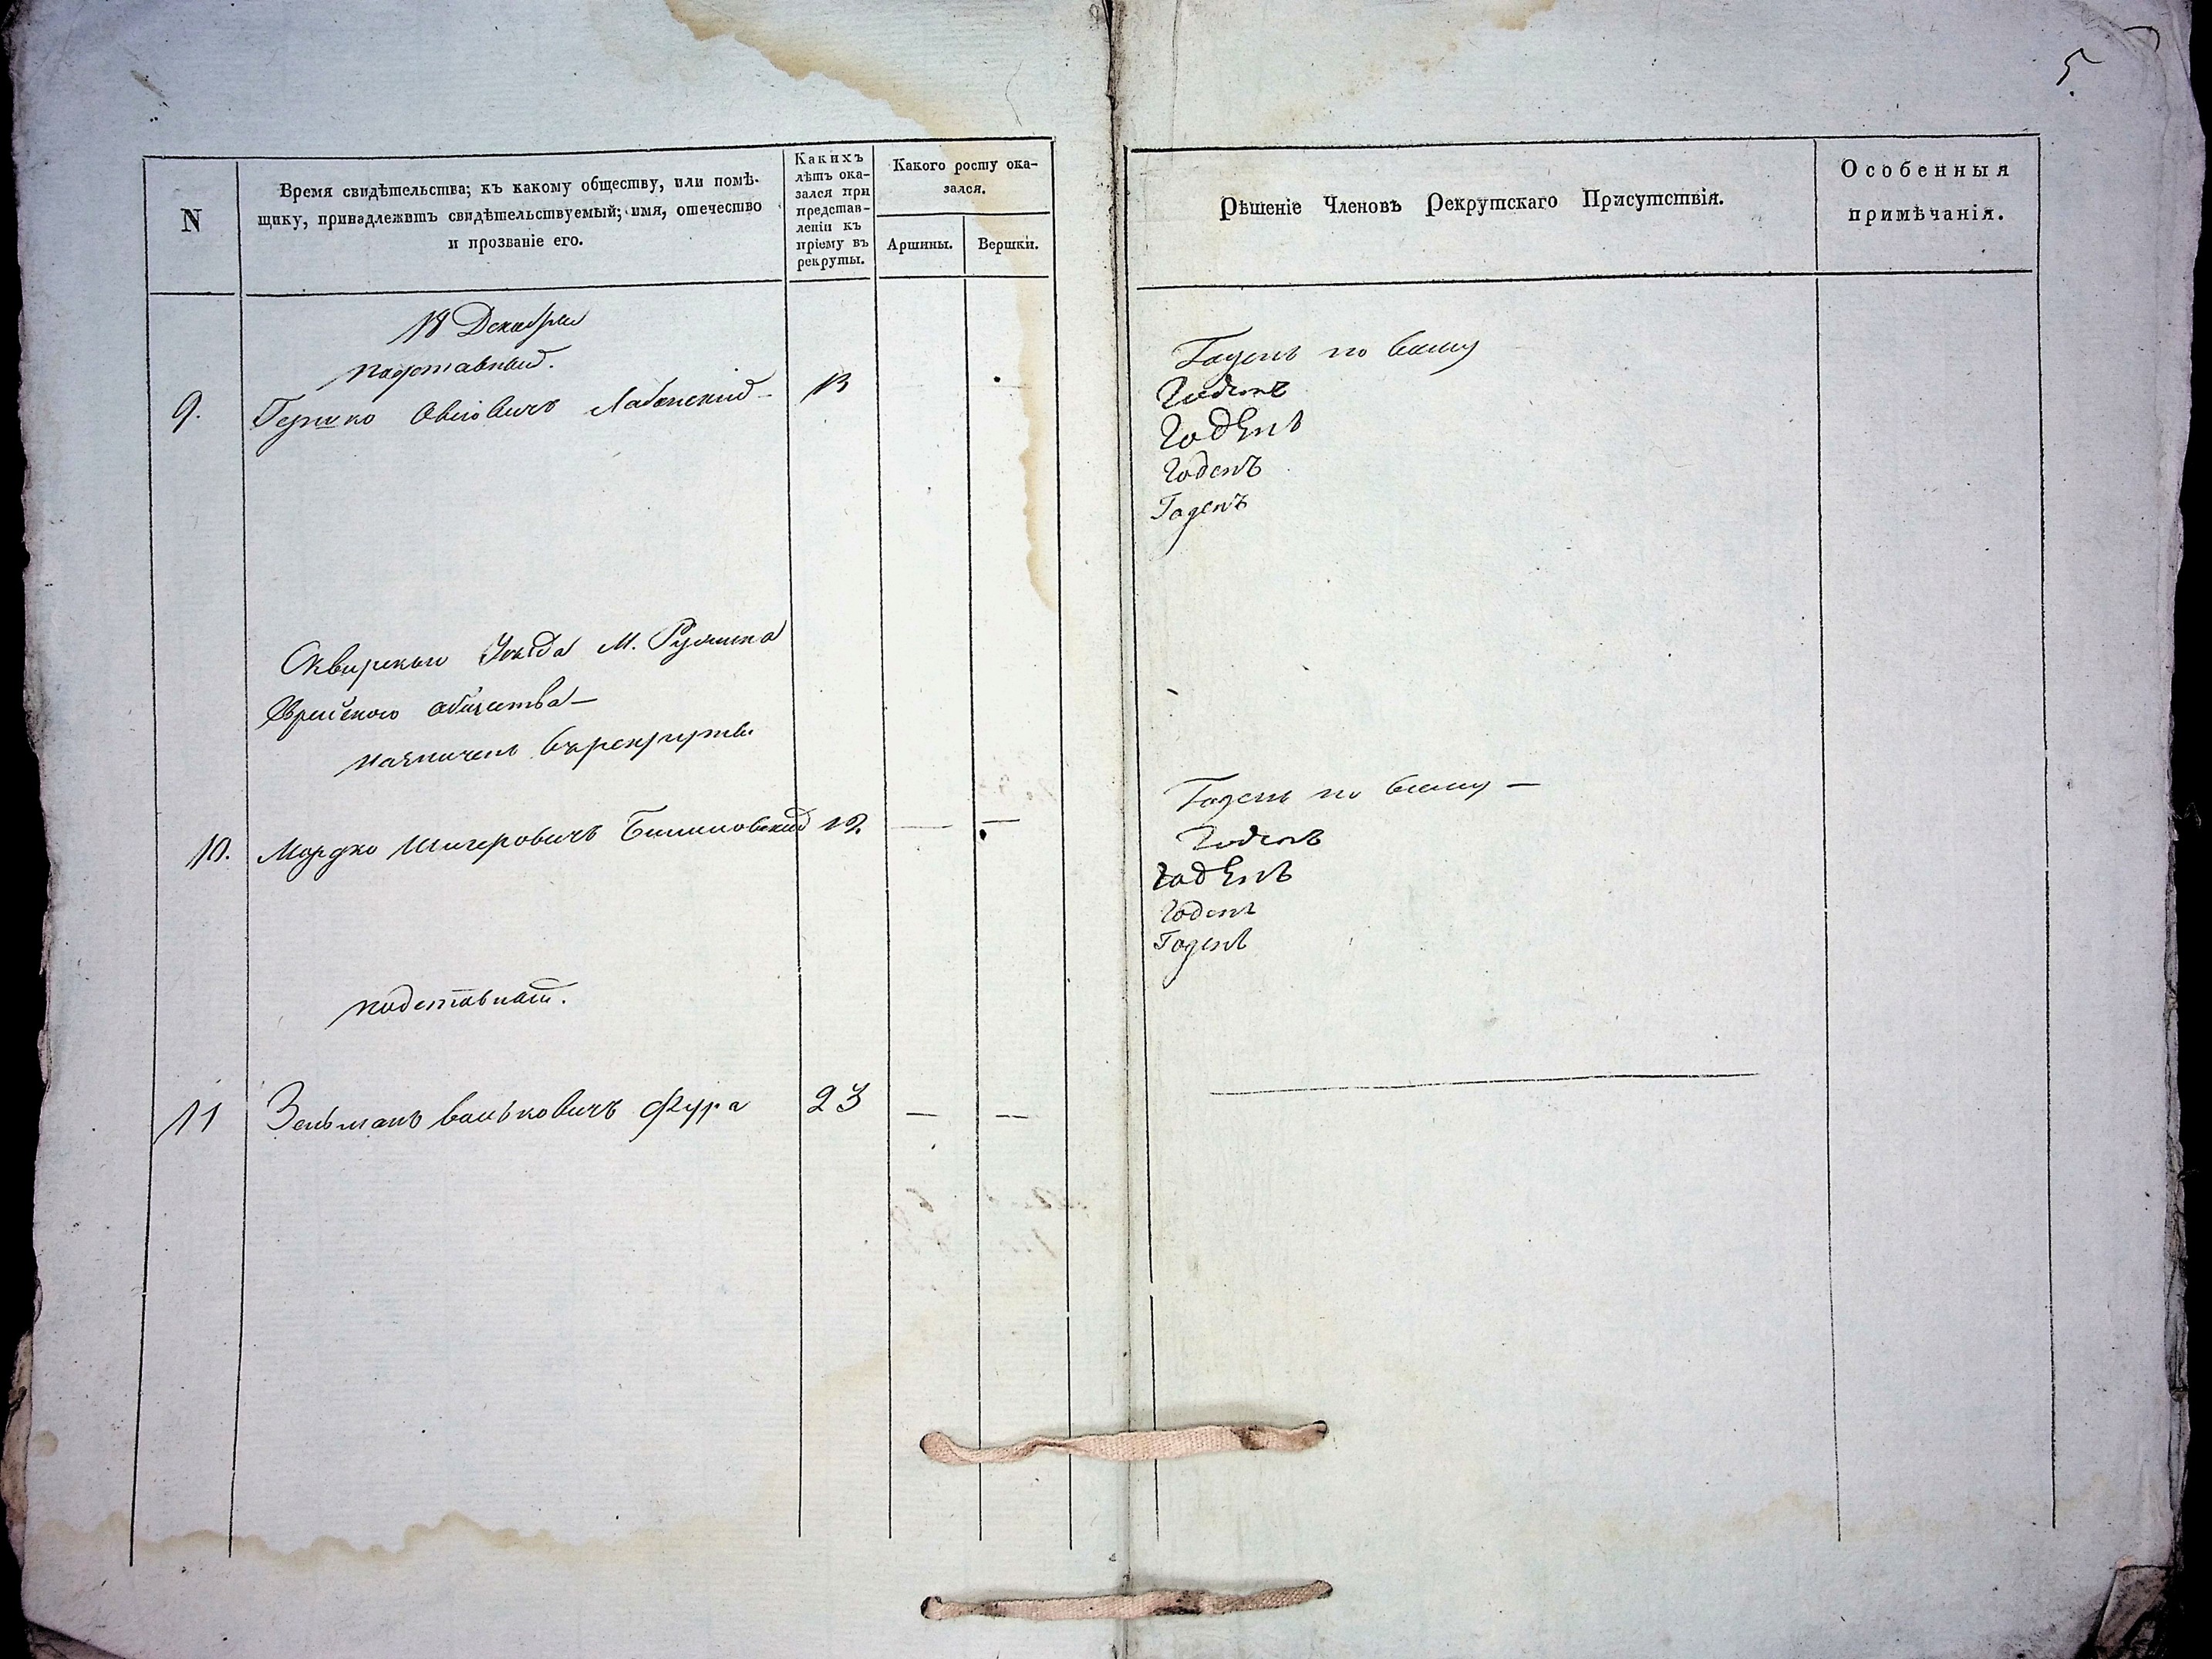 5.
N
Время свидѣтельства; къ какому обществу, или помѣ-
щику, принадлежитъ свидѣтельствуемый; имя, отечество
и прозваніе его.
Какихъ
лѣтъ ока-
зался при
представ-
леніи къ
пріему въ
рекруты.
Какого росту ока-
зался.
Аршины.
Вершки.
Рѣшеніе Членовъ Рекрутскаго Присутствія.
Особенныя
примѣчанія.
18 Декабря
подставный.
9. Гершко Овсіовичъ 13
Годенъ по
Годенъ
Годенъ
Годенъ
Годенъ
Сквирскаго Уезда М. Ружина
Еврейскаго общества —
назначенъ въ рекруты.
10. Мордко 12. — —
Годенъ по —
Годенъ
Годенъ
Годенъ
Годенъ
подставной.
11 Зельманъ Фура 23 — —